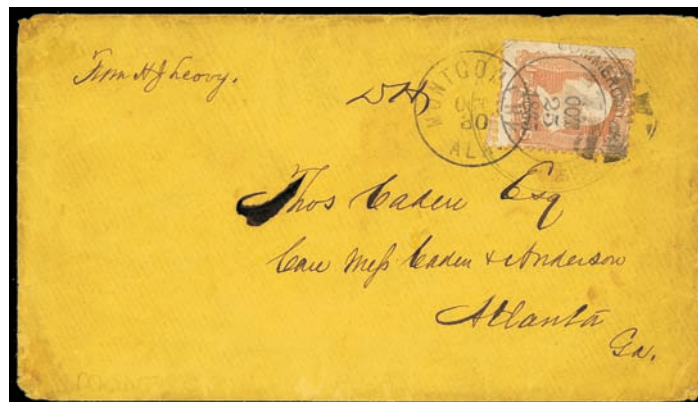 From H J Leovy.
DH
MONTGOMERY
OCT
20
ALA
COMMERCIAL
OCT
25
Thos Caden Esq
Care Mess Caden & Anderson
Atlanta
Ga.